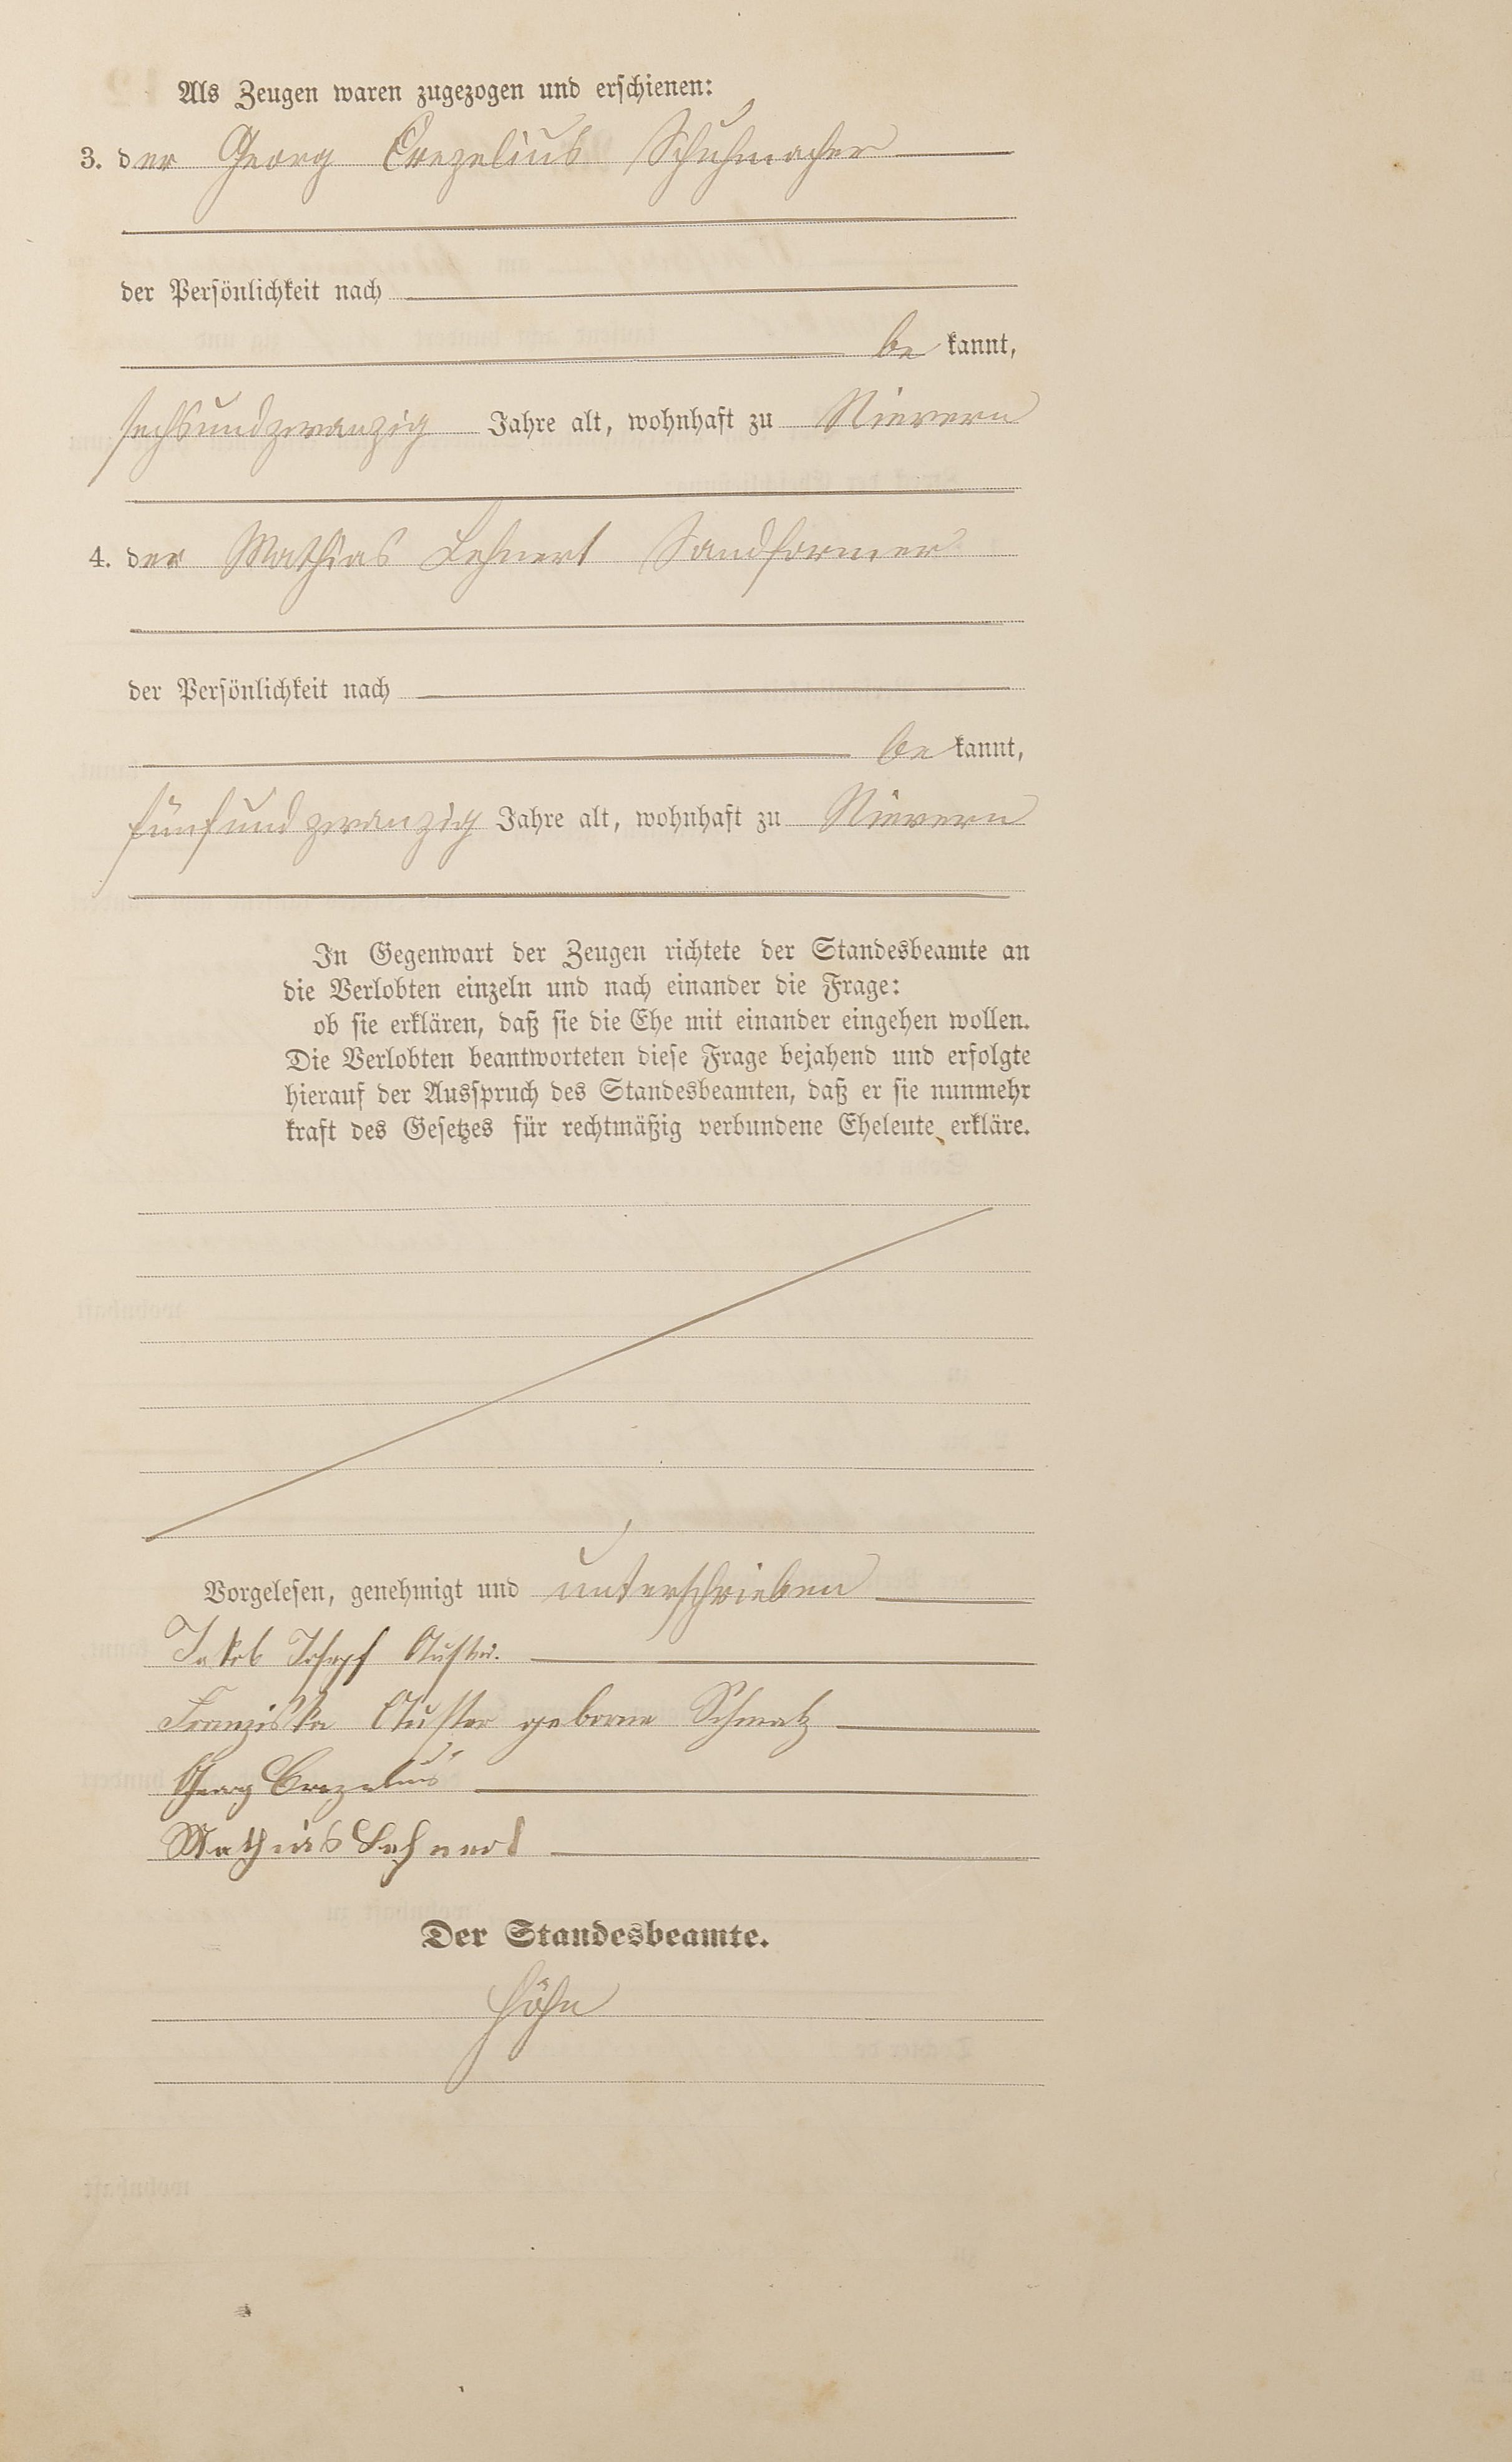 Als Zeugen waren zugezogen und erschienen:
3. der Georg Crezelius Schuhmacher
der Persönlichkeit nach
be kannt,
sechsundzwanzig Jahre alt, wohnhaft zu Nievern
4. der Mathias Lehnert Sandformer
der Persönlichkeit nach
be kannt,
fünfundzwanzig Jahre alt, wohnhaft zu Nievern
In Gegenwart der Zeugen richtete der Standesbeamte an
die Verlobten einzeln und nach einander die Frage:
ob sie erklären, daß sie die Ehe mit einander eingehen wollen.
Die Verlobten beantworteten diese Frage bejahend und erfolgte
hierauf der Ausspruch des Standesbeamten, daß er sie nunmehr
kraft des Gesetzes für rechtmäßig verbundene Eheleute erkläre.
Vorgelesen, genehmigt und unterschrieben
Jakob Josepf Auster.
Franziska Auster geborne Schmatz
Georg Crezelius
Mathias Lehnert
Der Standesbeamte.
Höhn